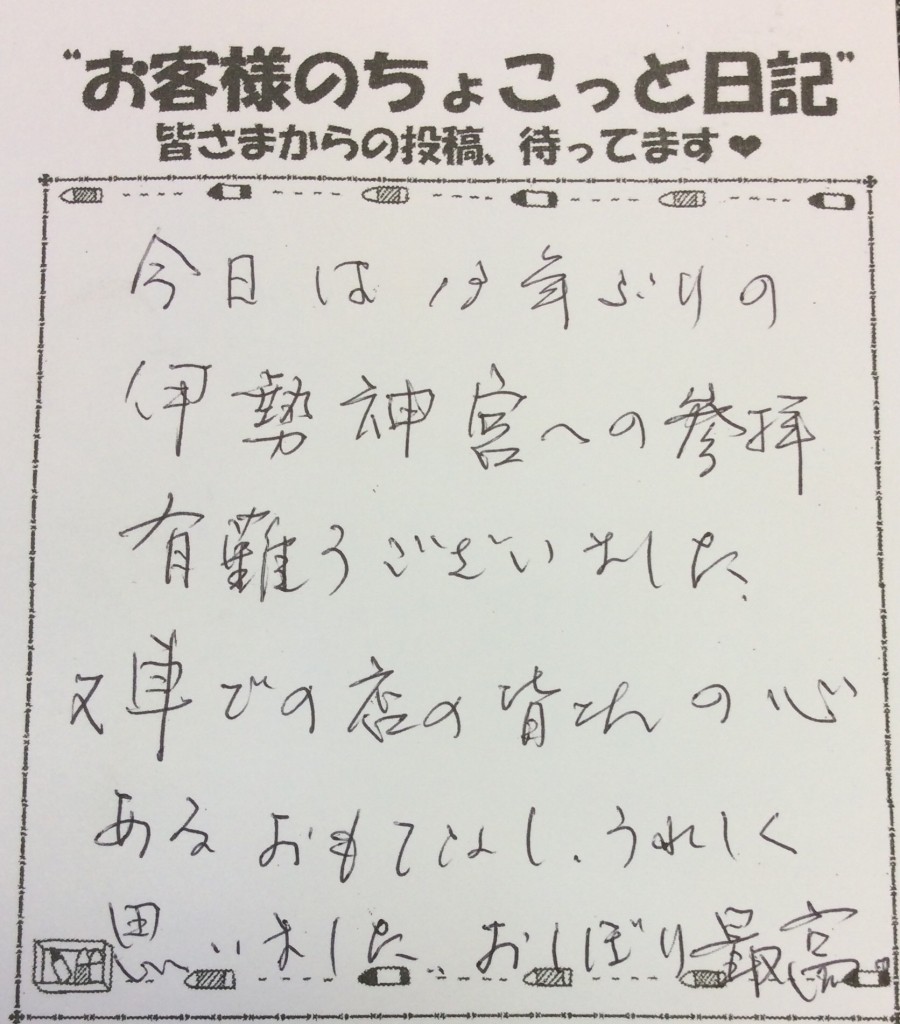 “お客様のちょこっと日記”
皆さまからの投稿、待ってます♥
今日は13年ぶりの
伊勢神宮への参拝
有難うございました、
又車での店の皆さんの心
あるおもてなし、うれしく
思いました、おしぼり最高